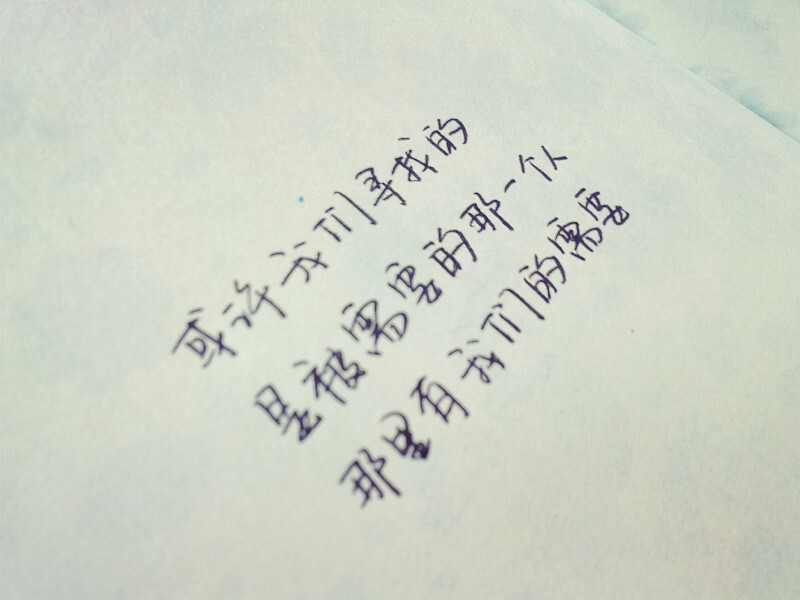 或许我们寻找的
是被需要的那一个人
那里有我们的需要